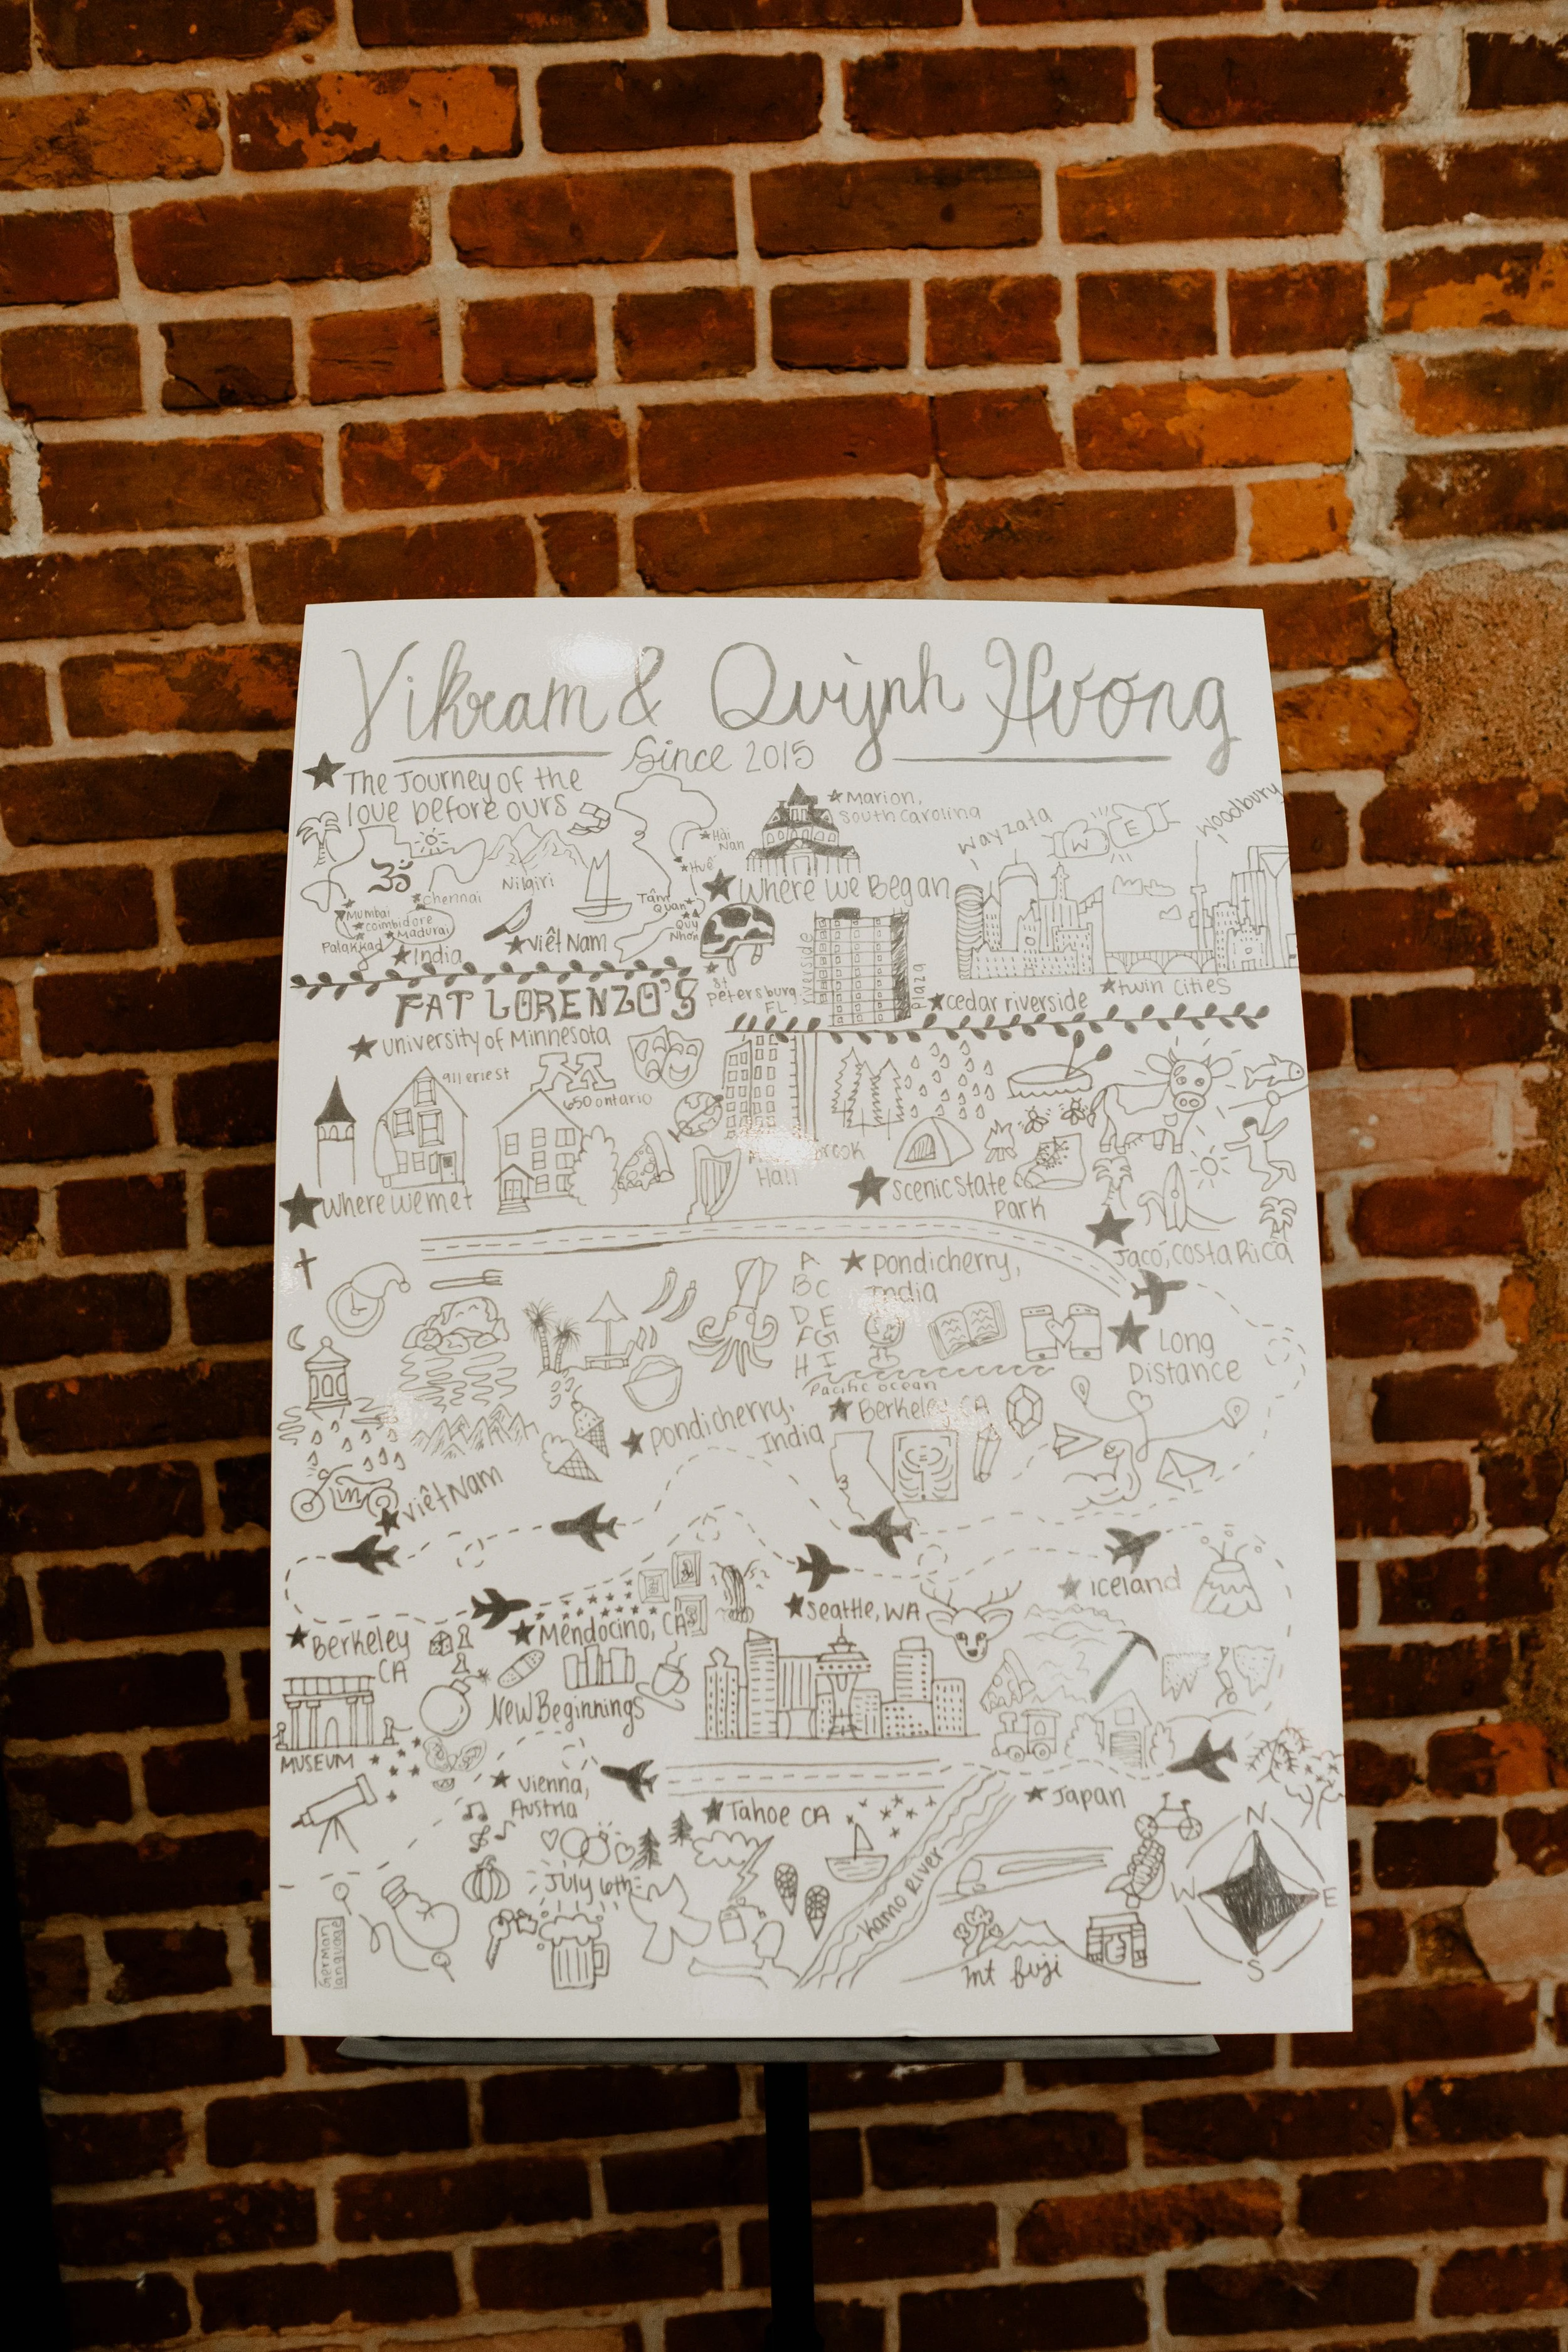 Vikram & Quỳnh Hương
Since 2015
The Journey of the
love before ours
ॐ
Chennai
Mumbai
Coimbidore
Madurai
Palakkad
India
Nilgiri
Việt Nam
Hải
Nan
Huế
Tâm
Quan
Quy
Nhơn
Marion,
South Carolina
Where we Began
St
Petersburg
FL
Riverside
Plaza
Wayzata
W E
Woodbury
cedar riverside
twin cities
FAT LORENZO'S
university of Minnesota
911 erie st
M
650 ontario
Hall
Where we met
Scenic State
Park
Jacó, Costa Rica
A
B C
D E
F G
H I
Pondicherry,
India
Long
Distance
Pacific ocean
Berkeley, CA
Pondicherry,
India
Việt Nam
Berkeley
CA
Mendocino, CA
Seattle, WA
Iceland
New Beginnings
MUSEUM
Vienna,
Austria
Tahoe CA
Japan
July 6th
Kamo River
German
language
Mt fuji
N
W E
S